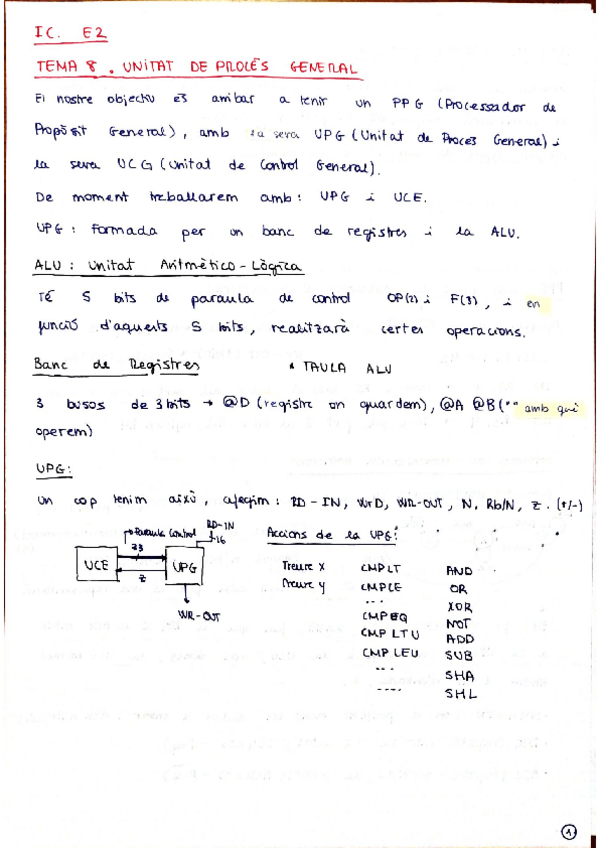 IC. E2
TEMA 8. UNITAT DE PROCÉS GENERAL
El nostre objectiu és arribar a tenir un PPG (Processador de
Propòsit General), amb la seva UPG (Unitat de Procés General) i
la seva UCG (Unitat de Control General).
De moment treballarem amb: UPG i UCE.
UPG: Formada per un banc de registres i la ALU.
ALU: Unitat Aritmètico-Lògica
Té 5 bits de paraula de control OP(2) i F(3), i en
funció d'aquests 5 bits, realitzarà certes operacions.
Banc de Registres * TAULA ALU
3 busos de 3 bits → @D (registre on guardem), @A @B (" " amb què
operem)
UPG:
Un cop tenim això, afegim: RD-IN, WrD, WR-OUT, N, Rb/N, z. (+/-)
Paraula Control
RD-IN
33
16
UCE
UPG
z
WR-OUT
Accions de la UPG:
Treure X CMPLT AND
Treure y CMPLE OR
---- XOR
CMPEQ NOT
CMPLTU ADD
CMPLEU SUB
---- SHA
---- SHL
1